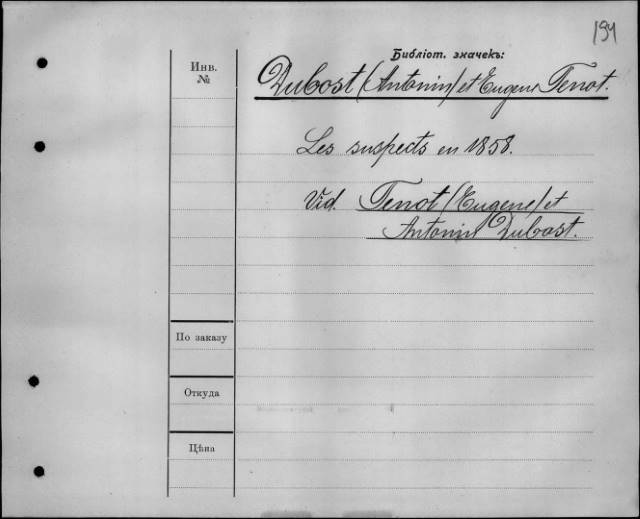 194
Библіот. значекъ:
Инв. №
Dubost (Antonin) et Eugene Tenot.
Les suspects en 1858.
Vid. Tenot (Eugene) et
Antonin Dubost.
По заказу
Откуда
Цѣна